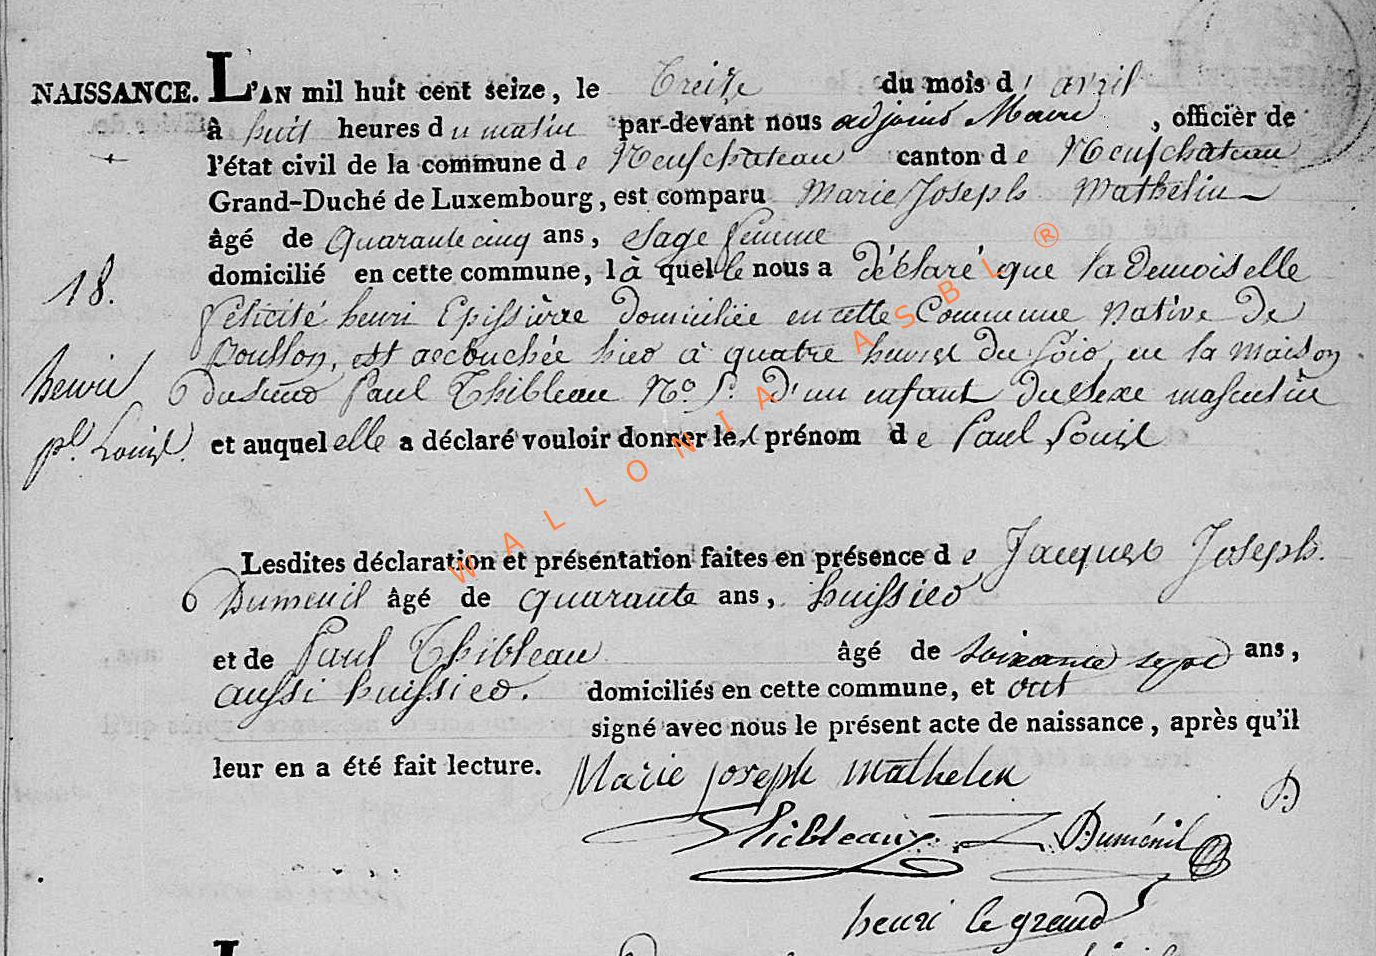 NAISSANCE. L'AN mil huit cent seize, le Treize du mois d'avril
à huit heures du matin par-devant nous adjoint Maire, officièr de
l'état civil de la commune de Neufchateau canton de Neufchateau
Grand-Duché de Luxembourg, est comparu Marie Joseph Mathelin
âgé de Quarante cinq ans, Sage femme
domicilié en cette commune, là quelle nous a déclaré que la Demoiselle
18.
félicité henri Epissière domiciliée en cette Commune Native De
est accouchée hier à quatre heures du Soir, en la maison
henri
du sieur Paul Thibleau No. d'un enfant du Sexe masculin
pl. Louis.
et auquel elle a déclaré vouloir donner les prénom de Paul Louis
Lesdites déclaration et présentation faites en présence de Jacques Joseph
Dumenil âgé de quarante ans, huissier
et de Paul Thibleau âgé de Soixante sept ans,
aussi huissier. domiciliés en cette commune, et ont
signé avec nous le présent acte de naissance, après qu'il
leur en a été fait lecture. Marie joseph mathelin
Thibleaux Duménil
henri le grand
WALLONIA ASBL ®